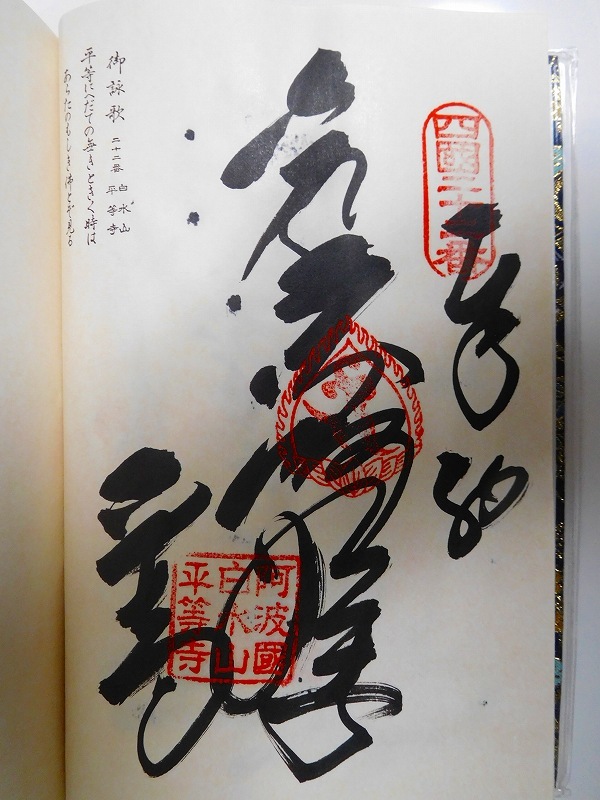 四國二十二番
奉納
平等寺
阿波國
白水山
平等寺
御詠歌 二十二番 白水山 平等寺
平等にへだての無きときく時は
あらたのもしき佛とぞ見る